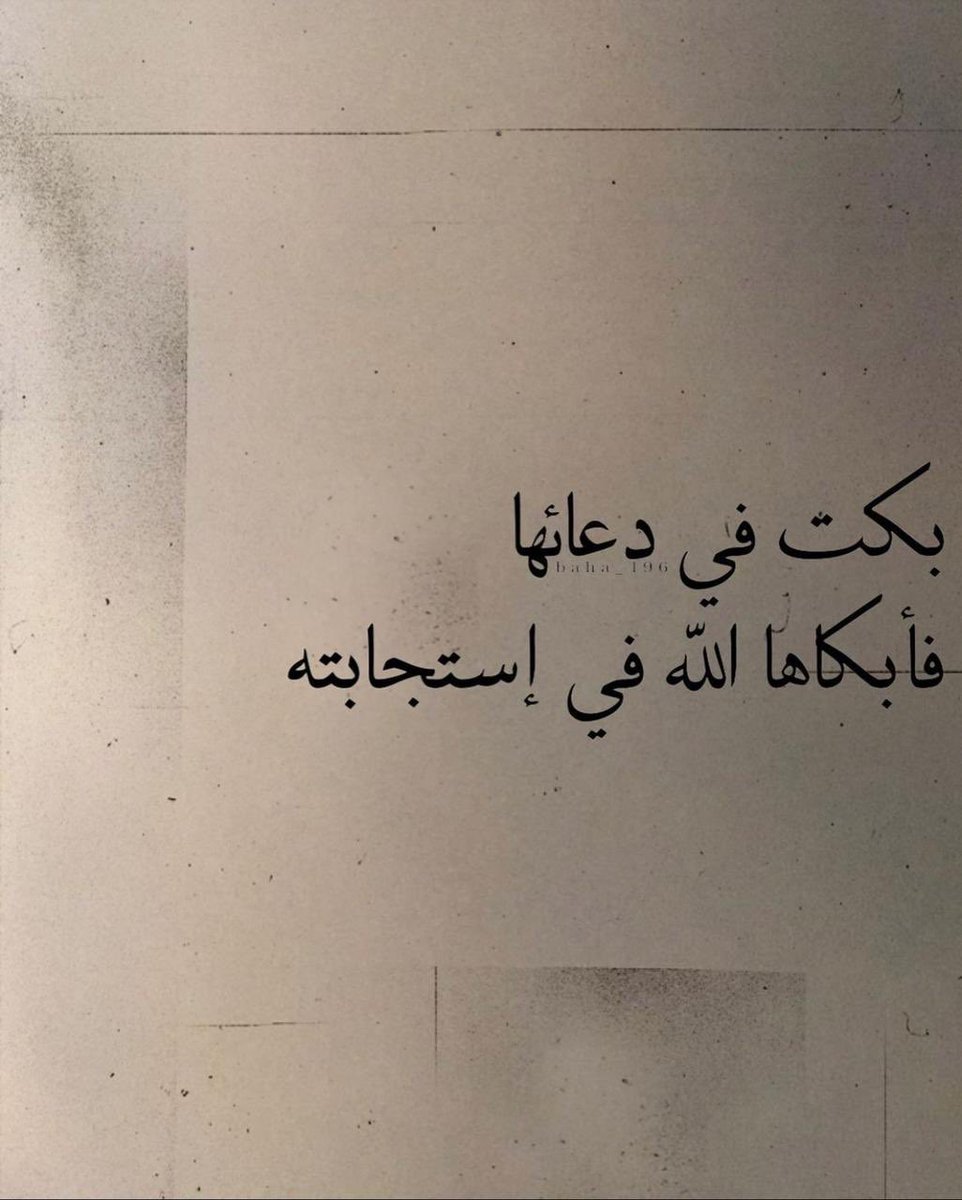 بكت في دعائها
baha_196
فأبكاها الله في إستجابته